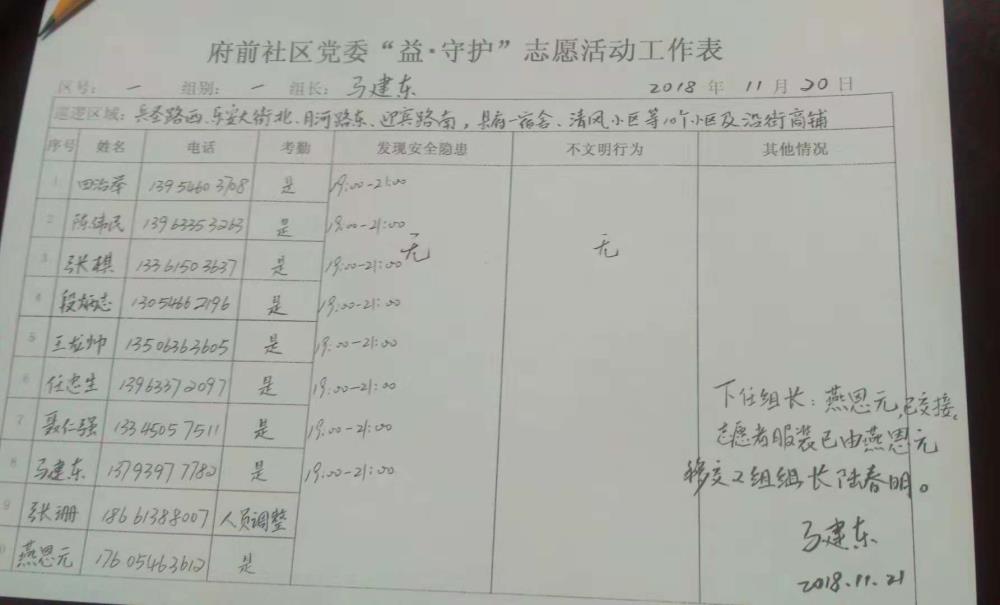 府前社区党委“益·守护”志愿活动工作表
区号： 一 组别： 一 组长： 马建东 2018 年 11 月 20 日
巡逻区域：兵圣路西、乐安大街北、月河路东、迎宾路南，县府一宿舍、清风小区等10个小区及沿街商铺
序号 姓名 电话 考勤 发现安全隐患 不文明行为 其他情况
1 田治举 13954603708 是 19:00-21:00
2 陈伟民 13963353263 是 19:00-21:00
无 无
3 张棋 13361503637 是 19:00-21:00
4 段炳志 13054662196 是 19:00-21:00
5 王龙帅 13506363605 是 19:00-21:00
6 任忠生 13963372097 是 19:00-21:00
7 聂仁强 13345057511 是 19:00-21:00
8 马建东 13793977782 是 19:00-21:00
9 张珊 18661388007 人员调整
0 燕恩元 17605463612 是
下任组长：燕恩元，已交接。
志愿者服装已由燕恩元
移交2组组长陆春明。
马建东
2018.11.21